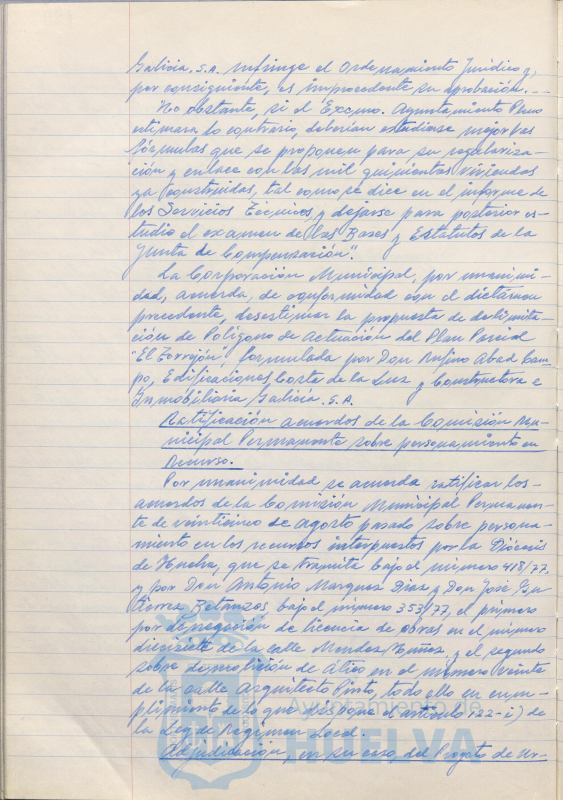 Galicia, S.A. infringe el Ordenamiento Jurídico y,
por consiguiente, es improcedente su aprobación.--
No obstante, si el Excmo. Ayuntamiento Pleno
estimara lo contrario, deberían estudiarse mejor las
fórmulas que se proponen para su regulariza-
ción y enlace con las mil quinientas viviendas
ya construidas, tal como se dice en el informe de
los Servicios Técnicos, y dejarse para posterior es-
tudio el examen de las Bases y Estatutos de la
Junta de Compensación".
La Corporación Municipal, por unanimi-
dad, acuerda, de conformidad con el dictámen
precedente, desestimar la propuesta de delimita-
ción de Polígono de Actuación del Plan Parcial
"El Torrejón", formulada por Don Rufino Abad Cam-
po, Edificaciones Costa de la Luz y Constructora e
Inmobiliaria Galicia, S.A.
Ratificación acuerdos de la Comisión Mu-
nicipal Permanente sobre personamiento en
recurso.
Por unanimidad se acuerda ratificar los-
acuerdos de la Comisión Municipal Permanen-
te de veinticinco de agosto pasado sobre persona-
miento en los recursos interpuestos por la Diócesis
de Huelva, que se tramita bajo el número 418/77
y por Don Antonio Marquez Diaz y Don José Gu-
tierrez Betanzos bajo el número 353/77, el primero
por denegación de licencia de obras en el número
diecisiete de la calle Mendez Nuñez, y el segundo
sobre demolición de Atico en el número veinte
de la calle Arquitecto Pinto, todo ello en cum-
plimiento de lo que dispone el artículo 122-i) de
la Ley de Régimen Local.
Adjudicación, en su caso, del Proyecto de Ur-
Ayuntamiento de
HUELVA